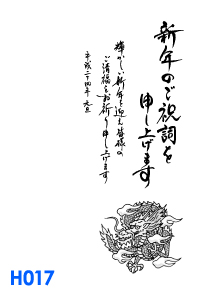 新年のご祝詞を
申し上げます
輝かしい新年を迎え皆様の
ご清福をお祈り申し上げます
平成二十四年 元旦
H017